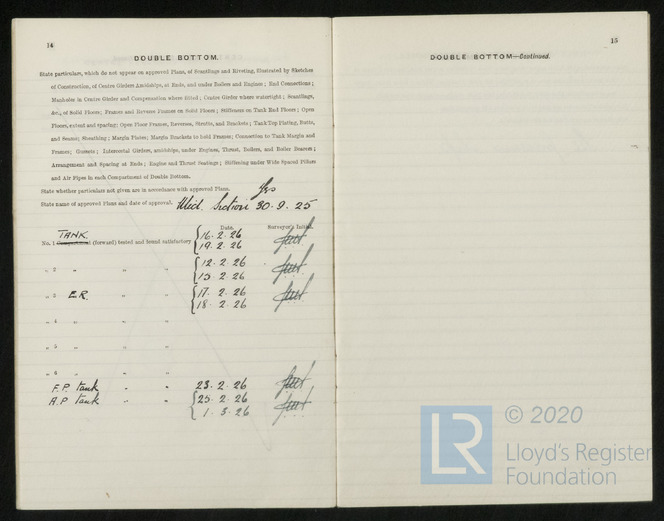 14
DOUBLE BOTTOM.
State particulars, which do not appear on approved Plans, of Scantlings and Riveting, illustrated by Sketches
of Construction, of Centre Girders Amidships, at Ends, and under Boilers and Engines; End Connections;
Manholes in Centre Girder and Compensation where fitted; Centre Girder where watertight; Scantlings,
&c., of Solid Floors; Frames and Reverse Frames on Solid Floors; Stiffeners on Tank End Floors; Open
Floors, extent and spacing; Open Floor Frames, Reverses, Struts, and Brackets; Tank Top Plating, Butts,
and Seams; Sheathing; Margin Plates; Margin Brackets to hold Frames; Connection to Tank Margin and
Frames; Gussets; Intercostal Girders, amidships, under Engines, Thrust, Boilers, and Boiler Bearers;
Arrangement and Spacing at Ends; Engine and Thrust Seatings; Stiffening under Wide Spaced Pillars
and Air Pipes in each Compartment of Double Bottom.
State whether particulars not given are in accordance with approved Plans. Yes
State name of approved Plans and date of approval. Mid. Section 30.9.25
Date. Surveyor's Initials.
TANK
No. 1 Compartment (forward) tested and found satisfactory 16.2.26
19.2.26
„ 2 „ „ „ 12.2.26
15.2.26
„ 3 E.R. „ „ 17.2.26
18.2.26
„ 4 „ „ „
„ 5 „ „ „
„ 6 „ „ „
F.P. tank „ „ 23.2.26
A.P tank „ „ 25.2.26
1.3.26
15
DOUBLE BOTTOM—Continued.
LR
© 2020
Lloyd's Register
Foundation